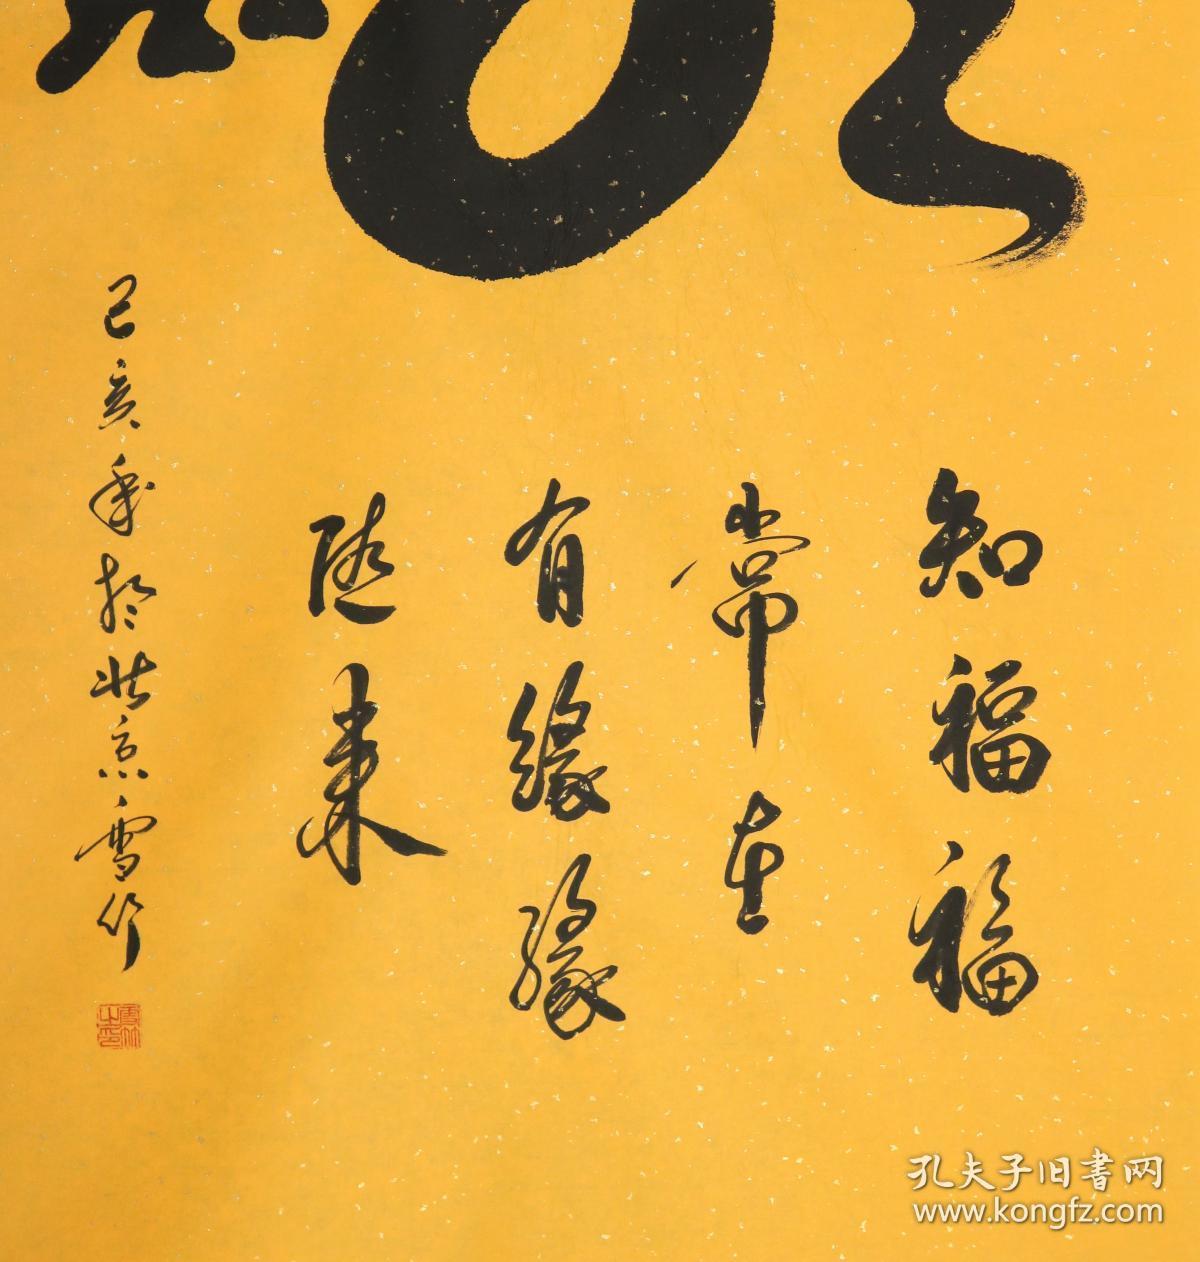 知福福
常在
有緣緣
随来
己亥年於北京雪竹
孔夫子旧書网
www.kongfz.com